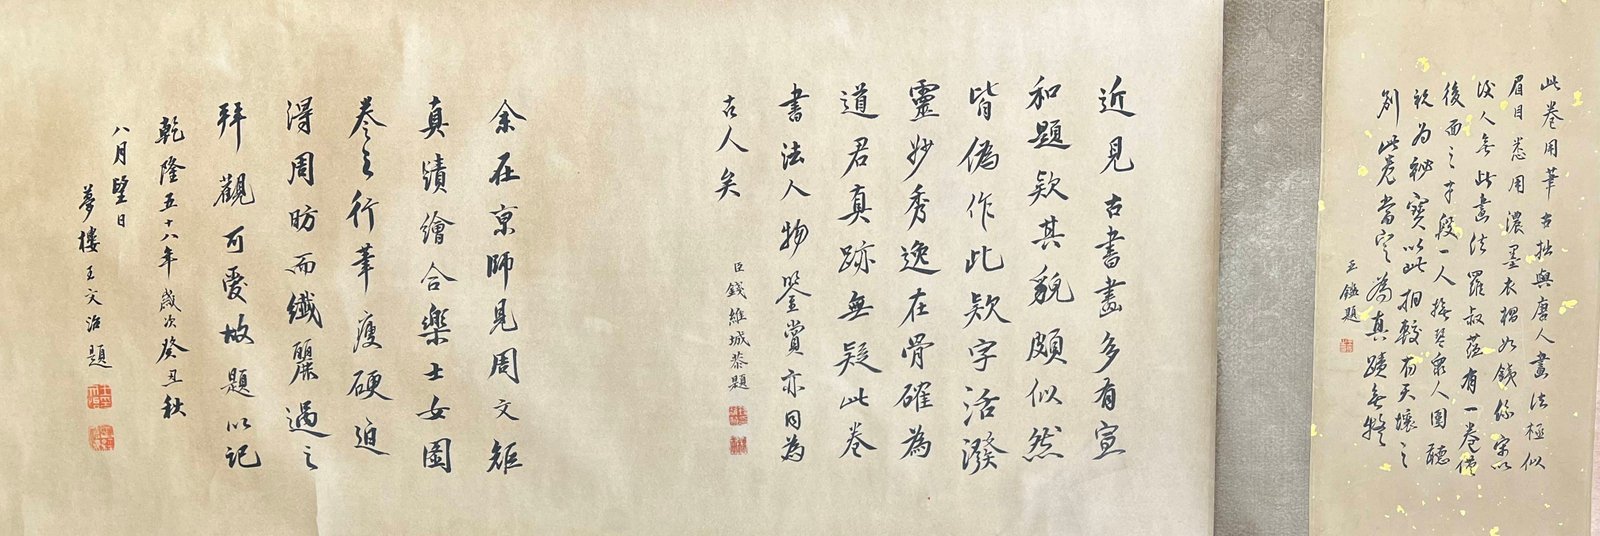 此卷用筆古拙與唐人畫法極似
眉目悉用濃墨衣褶如鐵係宋以
後人無此畫法羅叔蘊有一卷僅
後面之半段一人撫琴眾人圍聽
視為秘寶以此相較有天壤之
別此卷當定為真蹟無疑
王鑑題
近見古書畫多有宣
和題款其貌頗似然
皆偽作此款字活潑
靈妙秀逸在骨確為
道君真跡無疑此卷
書法人物鑒賞亦同為
古人矣
臣錢維城恭題
余在京師見周文矩
真蹟繪合樂士女圖
卷之行筆瘦硬迫
得周昉而纖麗過之
拜觀可愛故題以記
乾隆五十八年歲次癸丑秋
八月望日
夢樓王文治題